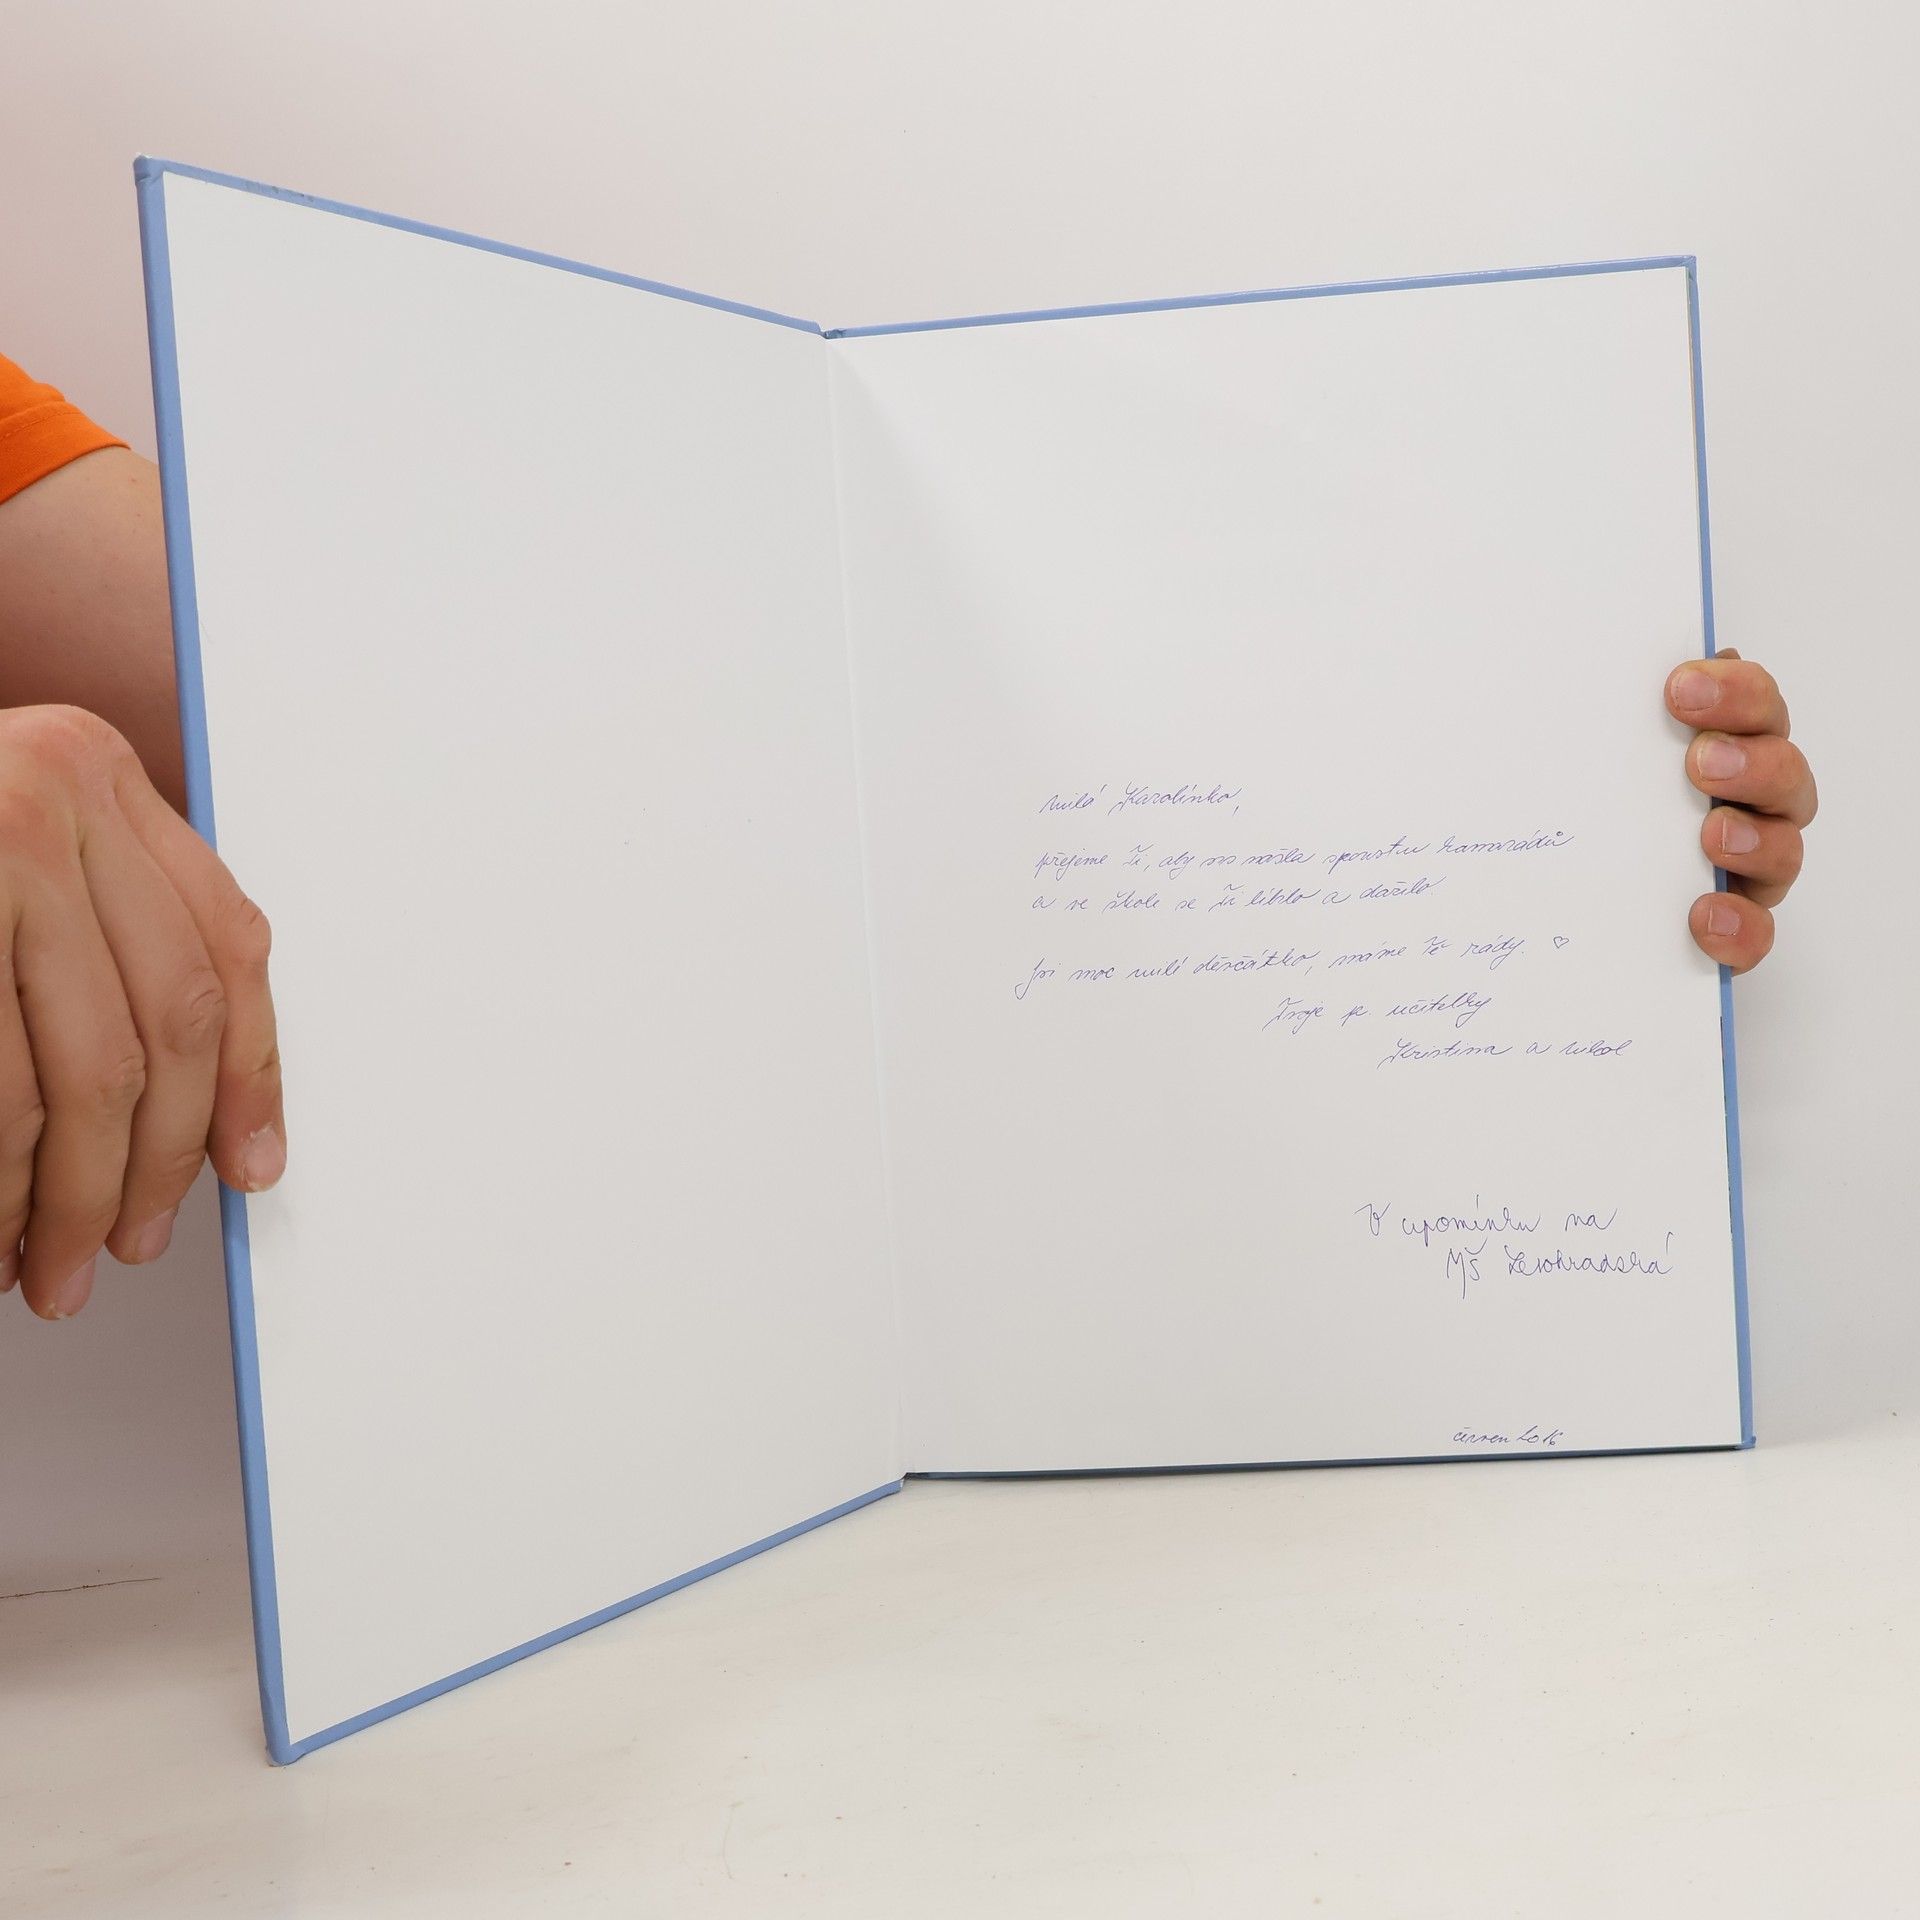 Milá Karolínko,
přejeme Ti, aby sis našla spoustu kamarádů
a ve škole se Ti líbilo a dařilo.
Jsi moc milé děvčátko, máme Tě rády. ♡
Tvoje p. učitelky
Kristina a Nikol
V upomínku na
MŠ Letohradská
červen 2016